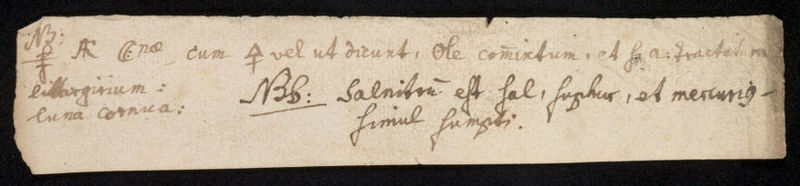 NB:
🜍 AR C:næ cum 🜍 vel ut dicunt, Ole comixtum, et s. a. tractatum
littargirium:
luna cornua:
NBb: Salnitrū est sal, suphur, et mercurig
simul sumpti.